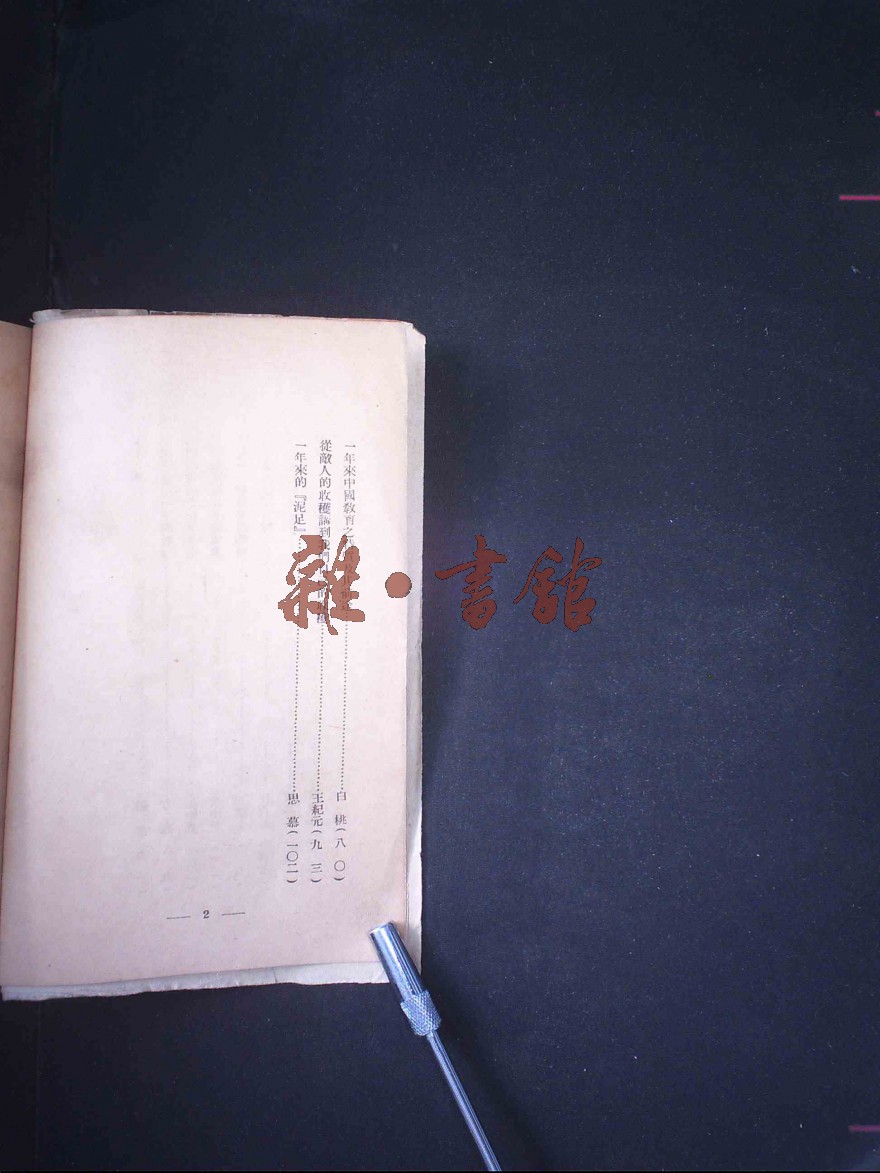 一年來中國教育之
從敵人的收穫講到我們
一年來的『泥足』
白　桃（八〇）
王紀元（九三）
思　慕（一〇二）
— 2 —
雜・書館